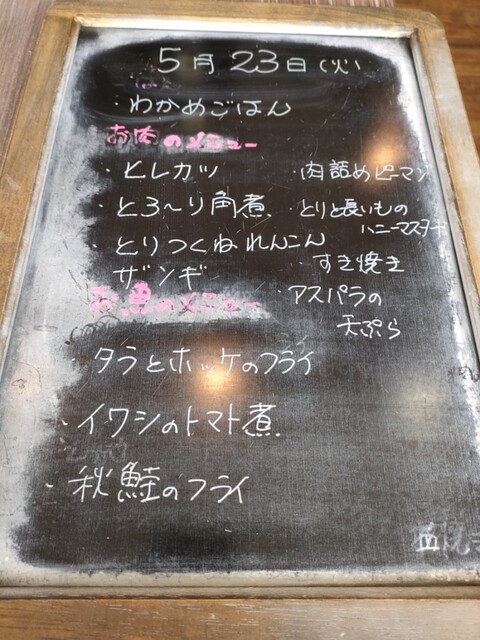 5月23日(火)
・わかめごはん
お肉のメニュー
・ヒレカツ
・とろ〜り角煮
・とりつくね れんこん
ザンギ
・肉詰めピーマン
・とりと長いもの
ハニーマスタード
・すき焼き
・アスパラの
天ぷら
お魚のメニュー
・タラとホッケのフライ
・イワシのトマト煮
・秋鮭のフライ